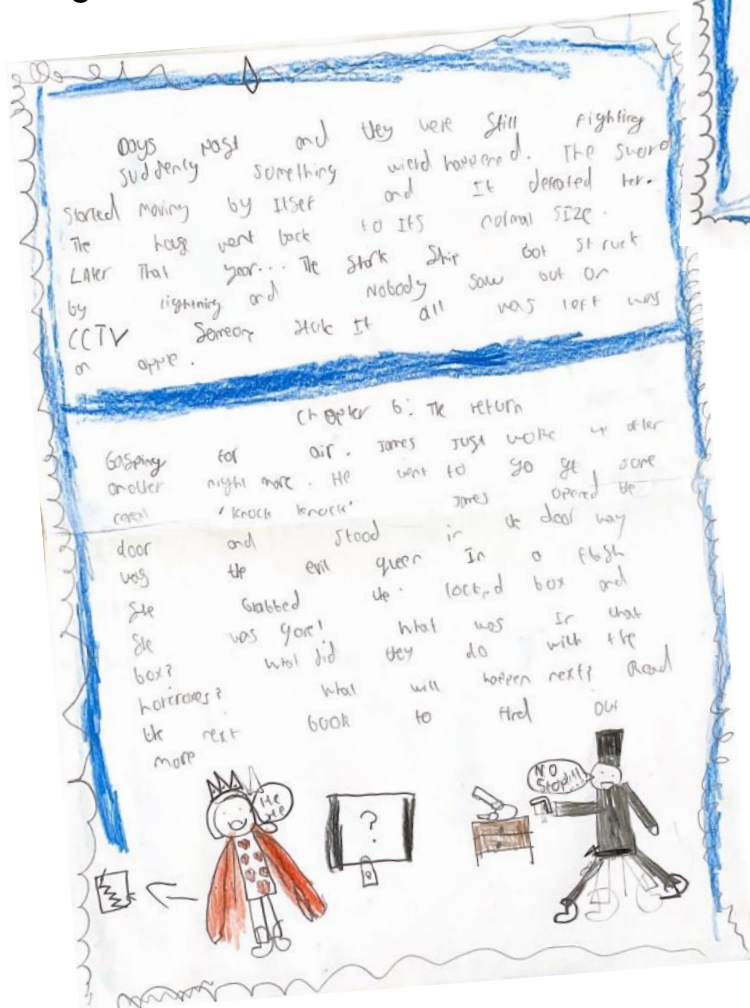 Days past and they were still fighting
suddenly something wierd happened. The sword
started moving by itself and It defeated her.
The house went back to ITS normal SIZE.
LATer That year... The Stark Ship Got struck
by lightning and Nobody saw but on
CCTV Someone stole It all was left was
an apple.
Chapter 6: The return
Gasping for air. James Just woke up after
another night mare. He went to go get some
cereal 'knock knock' James opened the
door and stood in the door way
was the evil queen In a flash
She Grabbed the locked box and
She was gone! What was In that
box? What did they do with the
horcroxes? What will happen next? Read
the next book to find out
more
He
hee
?
NO
Stop!!!